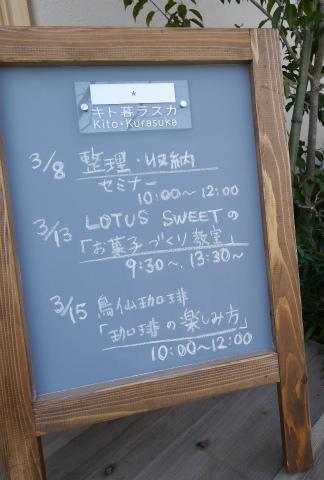 *
キト暮ラスカ
Kito・Kurasuka
3/8 整理・収納
セミナー
10:00〜12:00
3/13 LOTUS SWEETの
「お菓子づくり教室」
9:30〜、13:30〜
3/15 鳥仙珈琲
「珈琲の楽しみ方」
10:00〜12:00